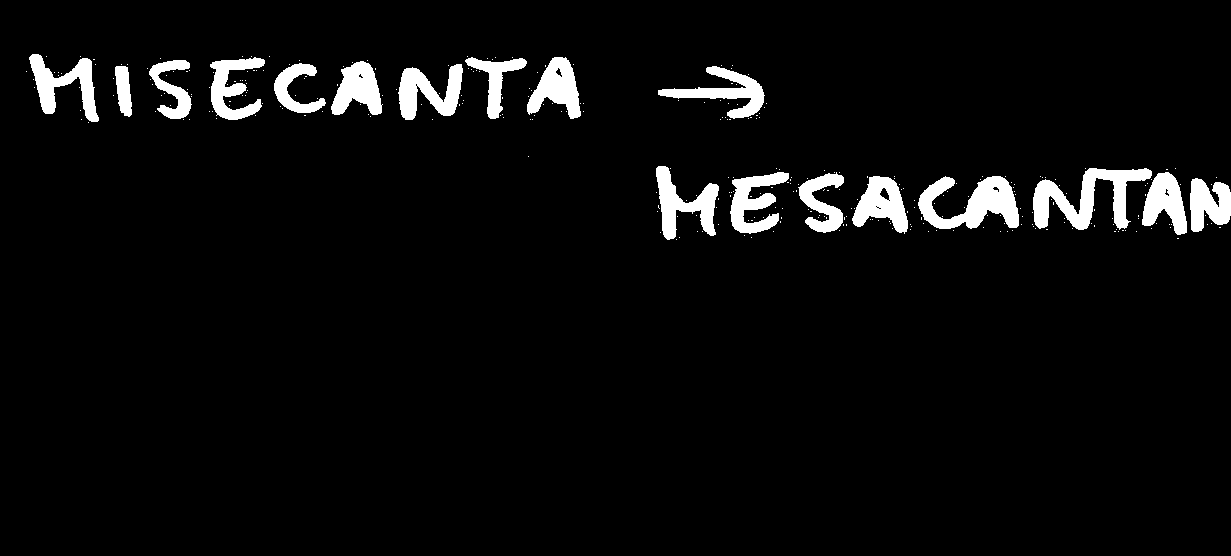 MISECANTA →
MESACANTAN